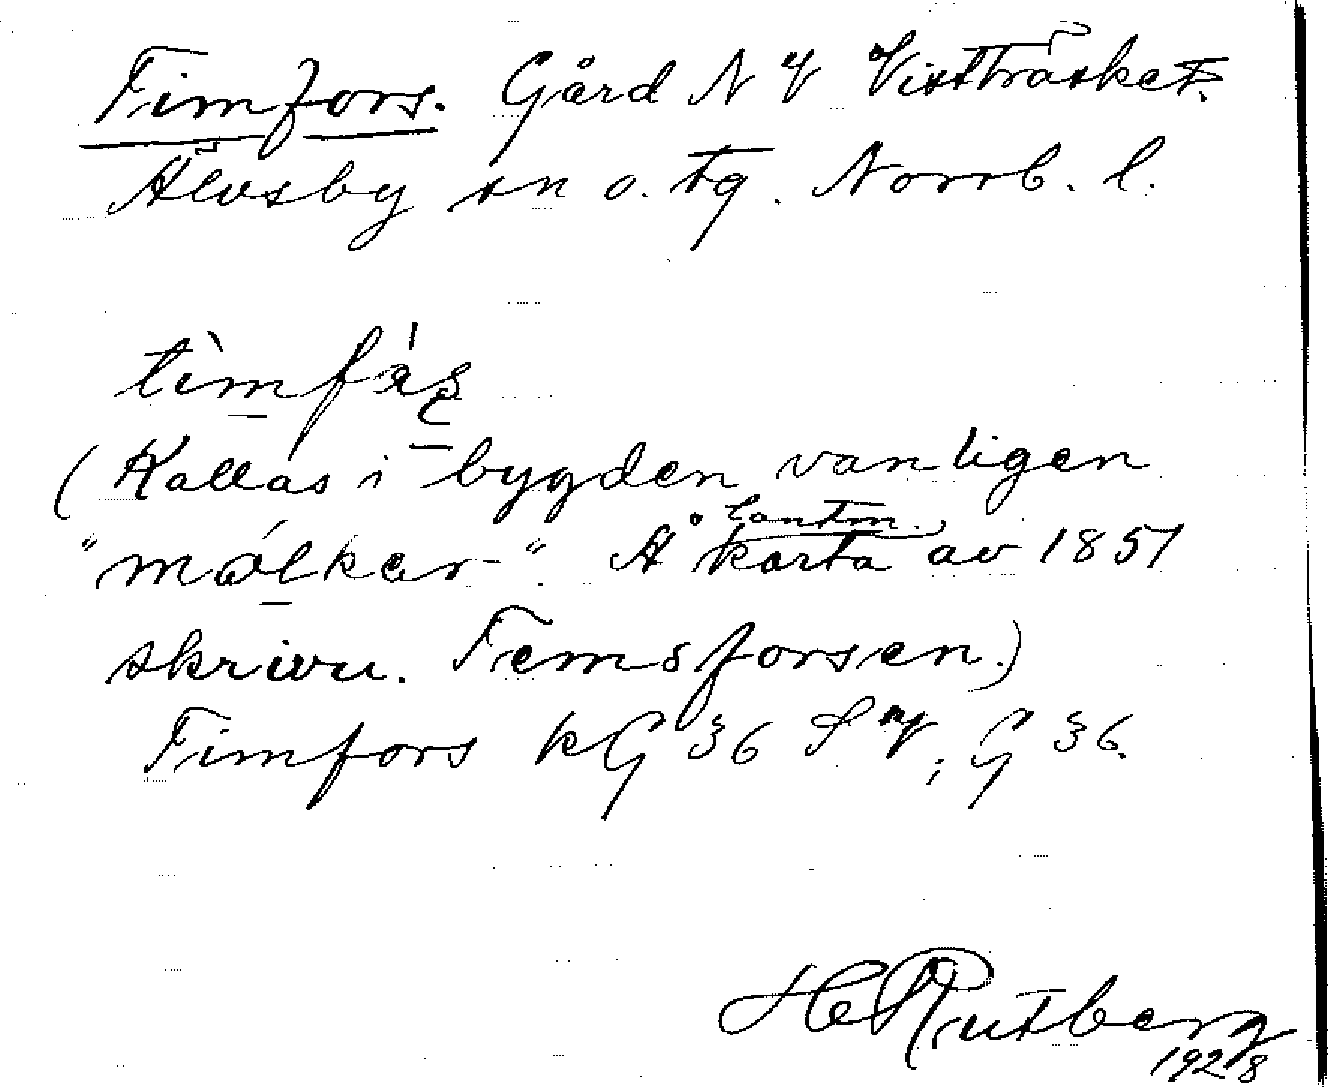 Timfors. Gård N V Vistträsket.
Älvsby sn o. tg. Norrb. l.
tìmfás
(Kallas i bygden vanligen
"mólkar-". Å lantm. karta av 1857
skrivn. Temsforsen.)
Timfors kG 36 S V; G 36.
H Rutberg
1928